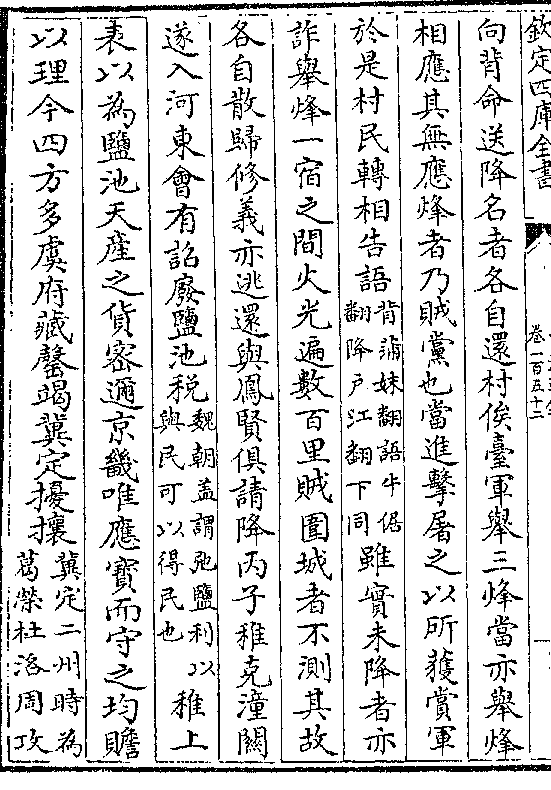 欽定四庫全書
卷一百五十二
向背命送降名者各自還村俟臺軍舉三烽當亦舉烽
相應其無應烽者乃賊黨也當進擊屠之以所獲賞軍
於是村民轉相告語背蒲妹翻語牛倨翻降户江翻下同雖實未降者亦
詐舉烽一宿之間火光遍數百里賊圍城者不測其故
各自散歸修義亦逃還與鳳賢俱請降丙子稚克潼關
遂入河東會有詔廢鹽池税魏朝蓋謂弛鹽利以與民可以得民也稚上
表以為鹽池天產之貨密邇京畿唯應寶而守之均贍
以理今四方多虞府藏罄竭冀定擾攘冀定二州時為葛榮杜洛周攻